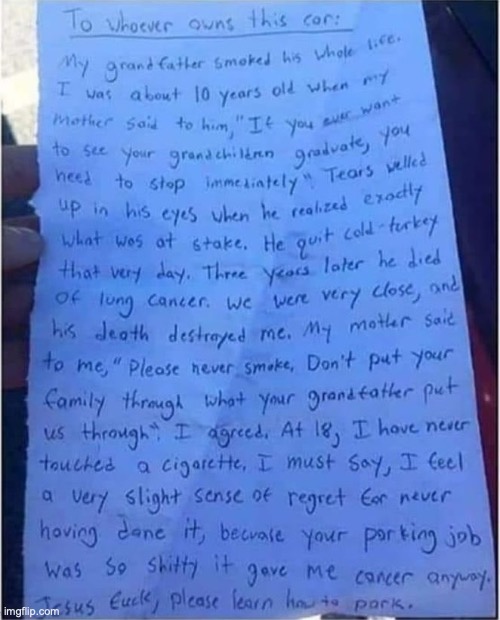 To whoever owns this car:
My grandfather smoked his whole life.
I was about 10 years old when my
mother said to him, "If you ever want
to see your grandchildren graduate, you
need to stop immediately". Tears welled
up in his eyes when he realized exactly
what was at stake. He quit cold-turkey
that very day. Three years later he died
of lung cancer. We were very close, and
his death destroyed me. My mother said
to me, "Please never smoke. Don't put your
family through what your grandfather put
us through". I agreed. At 18, I have never
touched a cigarette. I must say, I feel
a very slight sense of regret for never
having done it, because your parking job
was so shitty it gave me cancer anyway.
Jesus fuck, please learn how to park.
imgflip.com